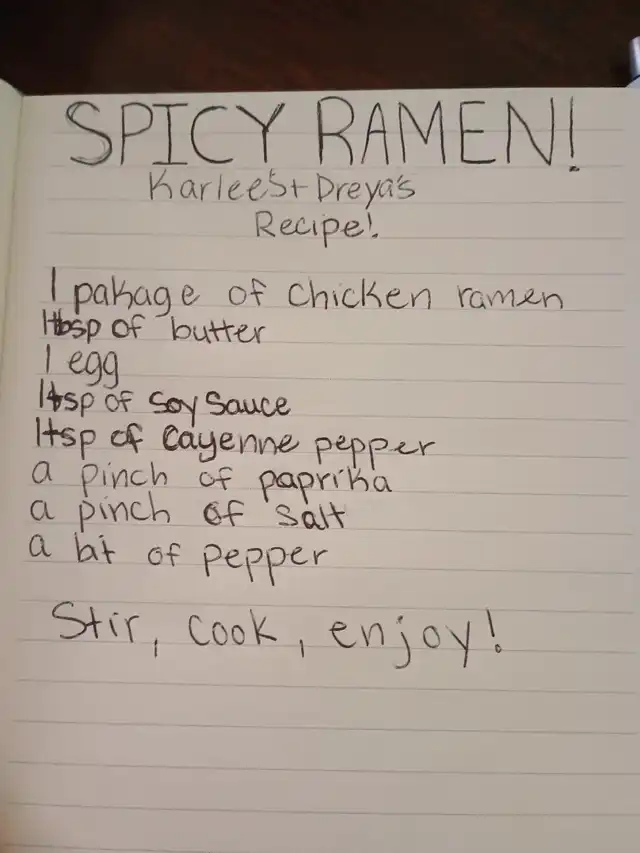 SPICY RAMEN!
Karlee's + Dreya's
Recipe!
1 pakage of chicken ramen
1 tbsp of butter
1 egg
1 tsp of Soy Sauce
1 tsp of Cayenne pepper
a pinch of paprika
a pinch of salt
a bit of pepper
Stir, cook, enjoy!